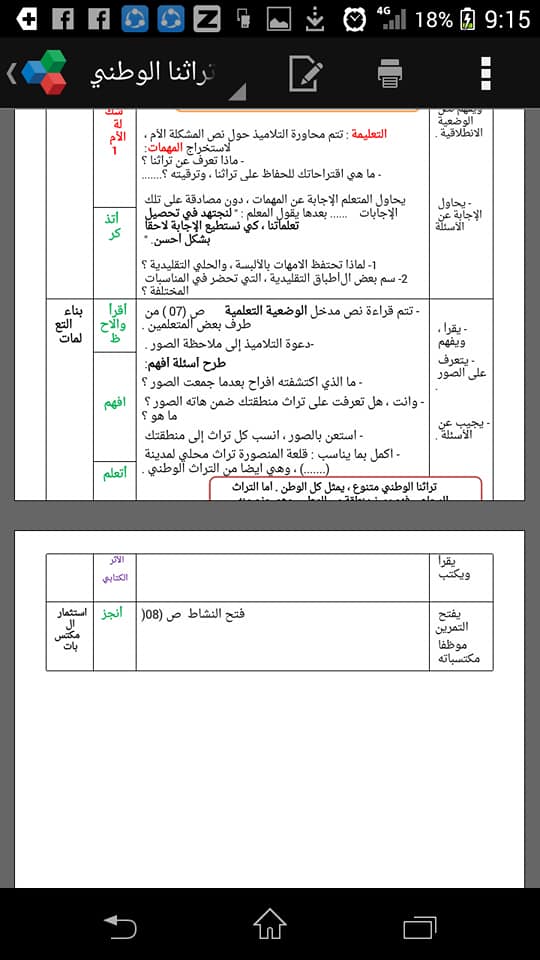 4G 18% 9:15
تراثنا الوطني
سك
لة
الأم
1
التعليمة : تتم محاورة التلاميذ حول نص المشكلة الأم ،
لاستخراج المهمات:
- ماذا تعرف عن تراثنا ؟
- ما هي اقتراحاتك للحفاظ على تراثنا ، وترقيته ؟.......
الوضعية
الانطلاقية .
أتذ
كر
يحاول المتعلم الإجابة عن المهمات ، دون مصادقة على تلك
الإجابات ...... بعدها يقول المعلم : " لنجتهد في تحصيل
تعلماتنا ، كي نستطيع الإجابة لاحقا
بشكل أحسن. "
1- لماذا تحتفظ الامهات بالألبسة ، والحلي التقليدية ؟
2- سم بعض الأطباق التقليدية ، التي تحضر في المناسبات
المختلفة ؟
- يحاول
الإجابة عن
الأسئلة
بناء
التع
لمات
أقرأ
والاح
ظ
- تتم قراءة نص مدخل الوضعية التعلمية ص (07 ) من
طرف بعض المتعلمين .
-دعوة التلاميذ إلى ملاحظة الصور .
- يقرأ ،
ويفهم
- يتعرف
على الصور
.
افهم
طرح أسئلة أفهم:
- ما الذي اكتشفته افراح بعدما جمعت الصور ؟
- وانت ، هل تعرفت على تراث منطقتك ضمن هاته الصور ؟
ما هو ؟
- استعن بالصور ، انسب كل تراث إلى منطقتك
- اكمل بما يناسب : قلعة المنصورة تراث محلي لمدينة
(.......) ، وهي ايضا من التراث الوطني .
- يجيب عن
الأسئلة .
أتعلم
تراثنا الوطني متنوع ، يمثل كل الوطن . اما التراث
الأثر
الكتابي
يقرأ
ويكتب
استثمار
ال
مكتس
بات
أنجز
فتح النشاط ص (08(
يفتح
التمرين
موظفا
مكتسباته